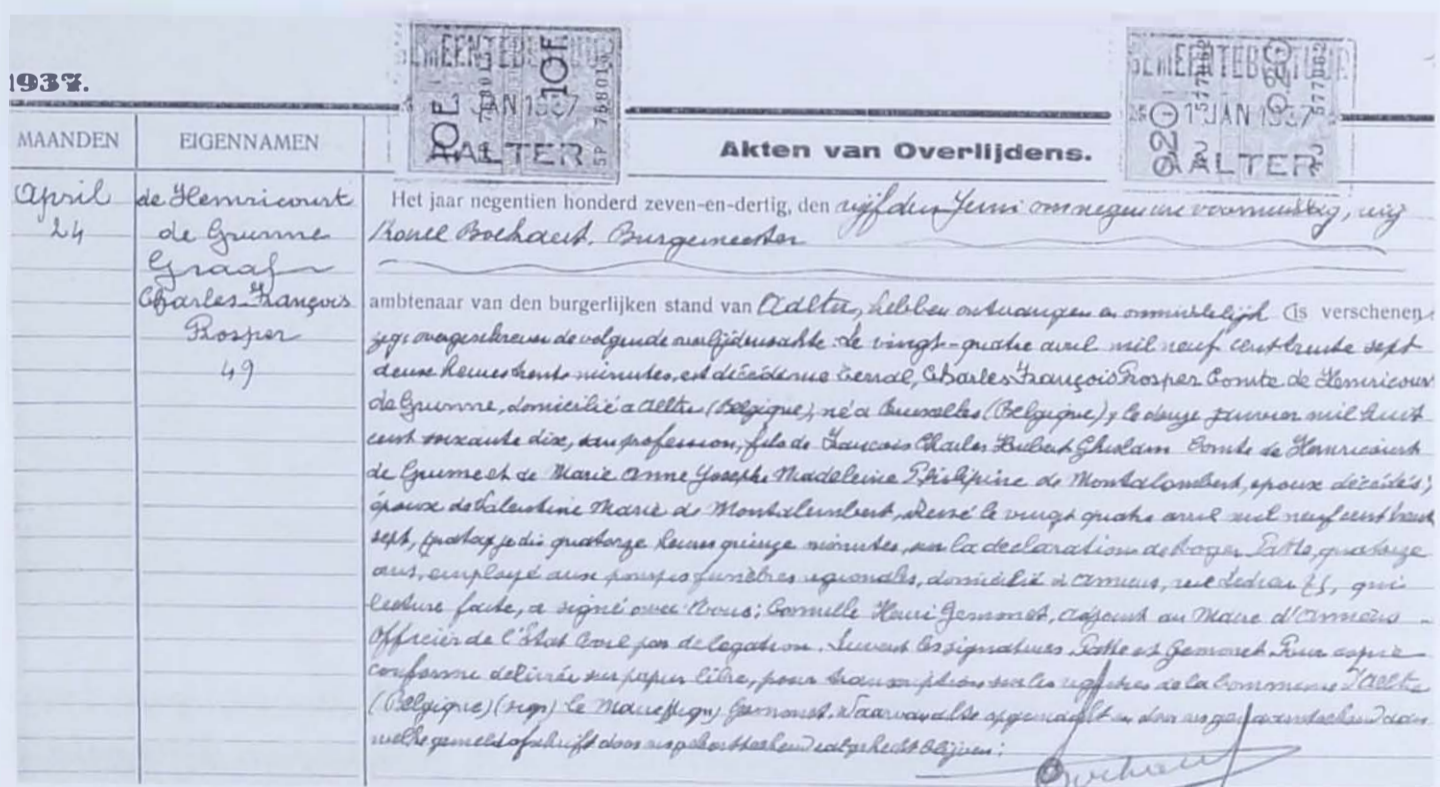 1937.
GEMEENTEBESTUUR
JAN 1937
10F
10F
AALTER
GEMEENTEBESTUUR
1 JAN 1937
AALTER
MAANDEN
EIGENNAMEN
Akten van Overlijdens.
April
24
de Hemricourt
de Grunne
Graaf
Charles François
Prosper
49
Het jaar negentien honderd zeven-en-dertig, den vijfden Juni om negen ure voormiddag, wij
Boehaert, Burgemeester
ambtenaar van den burgerlijken stand van Aalter, hebben ontvangen en onmiddelijk (is verschenen
overgeschreven de volgende overlijdensakte Le vingt-quatre avril mil neuf cent trente sept
deux heures trente minutes, est décédé rue Charles François Prosper Comte de Hemricourt
de Grunne, domicilié à Aeltre (Belgique), né à Bruxelles (Belgique), le douze janvier mil huit
cent soixante dix, sans profession, fils de François Charles Hubert Ghislain Comte de Hemricourt
de Grunne et de Marie Anne Josephe Madeleine Philipine de Montalembert, epoux décédés;
époux de Valentine Marie de Montalembert, Dressé le vingt quatre avril mil neuf cent trente
sept, quatorze heures quinze minutes, sur la declaration de Roger Patte, quatorze
ans, employé aux pompes funèbres regionales, domicilié à Amiens, rue Ledieu qui
lecture faite, a signé avec Nous: Henri Gemonet, adjoint au Maire d'Amiens
Officier de l'Etat Civil par delegation. Suivent les signatures Patte et Gemonet Pour copie
conforme delivrée sur papier libre, pour transcription sur les registres de la Commune d'Aeltre
(Belgique) (sign) le Maire (sign) Gemonet. Waarvan akte opgemaakt en door ons
welke gemeld afschrift door ons blijven: